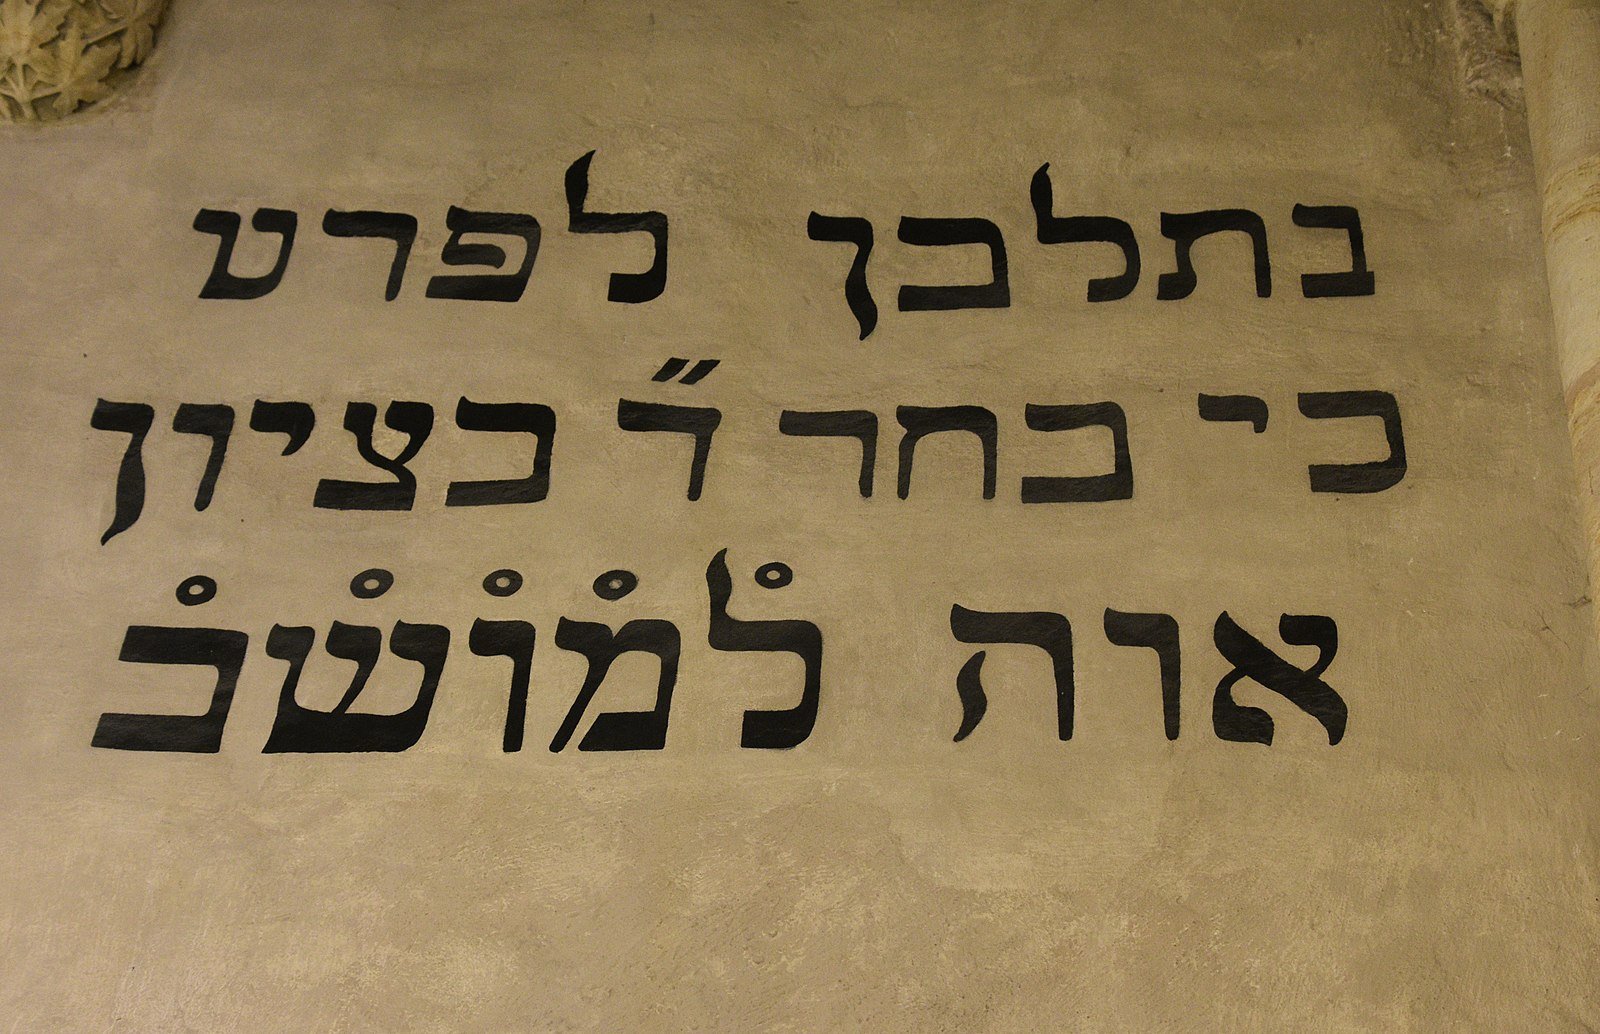 נתלבן לפרט
כי בחר ד״ בציון
אוה ל֯מ֯ו֯ש֯ב֯